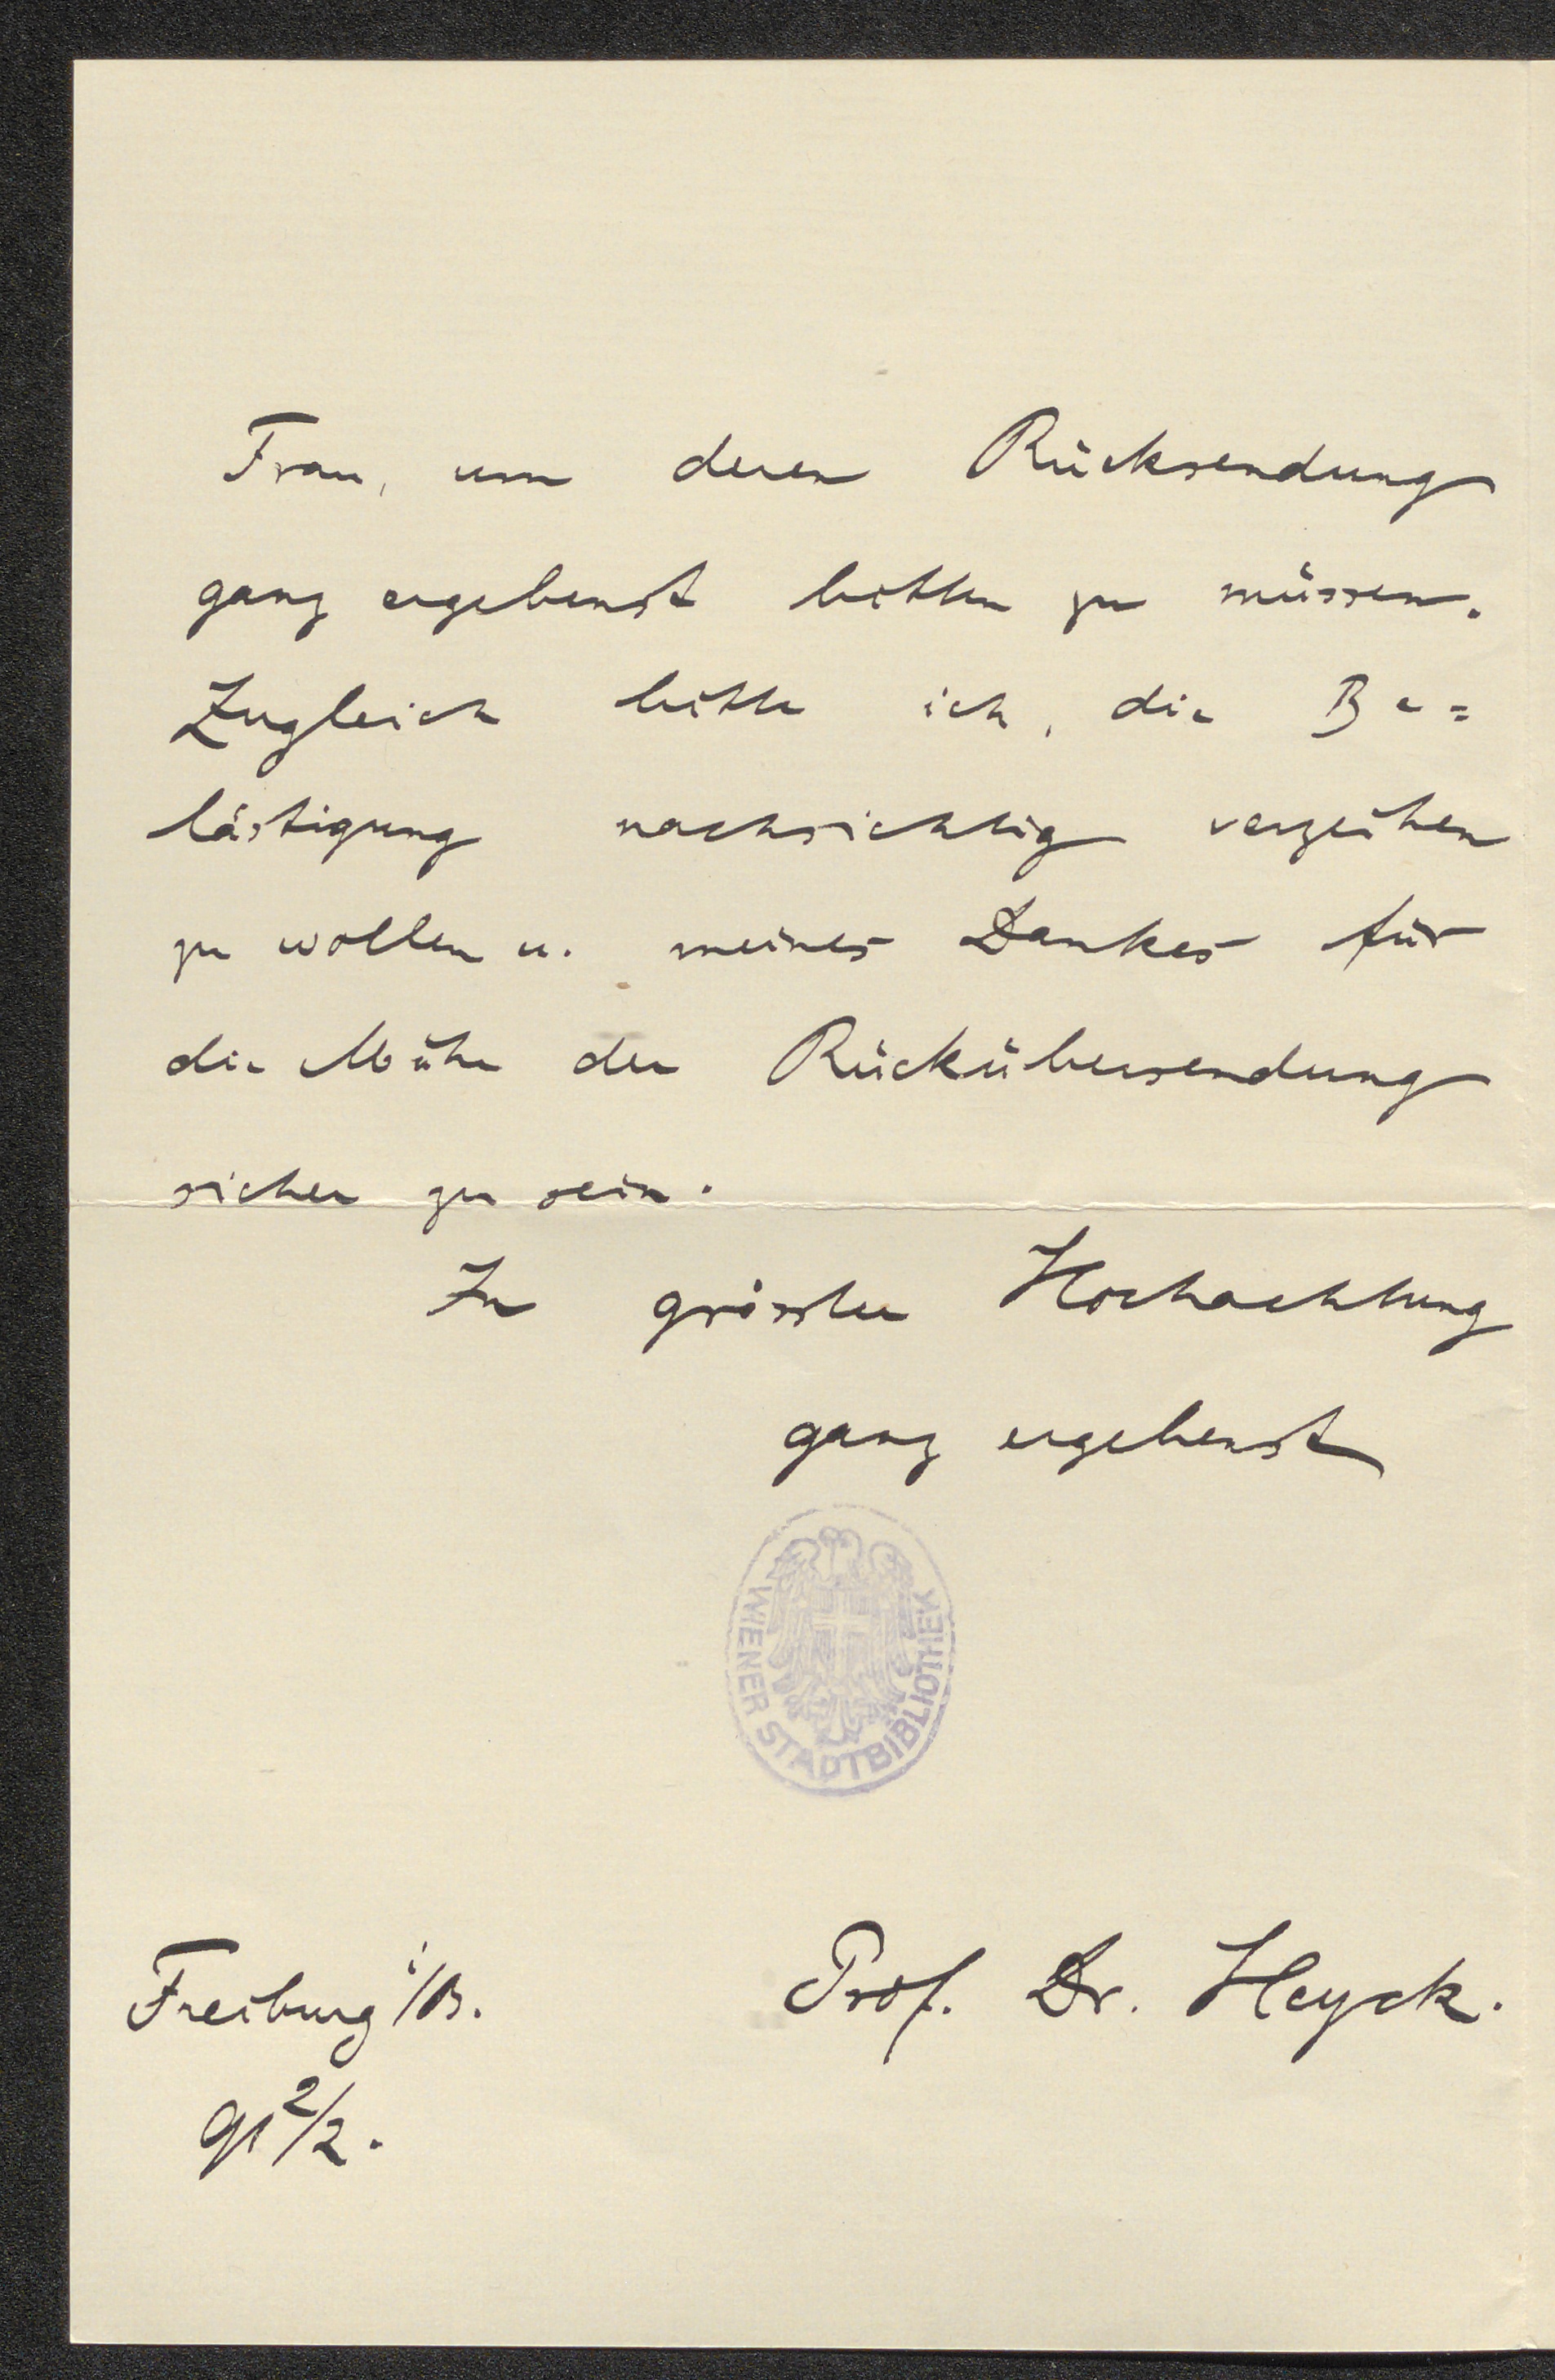 Frau, um deren Rücksendung
ganz ergebenst bitten zu müssen.
Zugleich bitte ich, die Be=
lästigung nachsichtig verzeihen
zu wollen u. meines Dankes für
die Mühe der Rückübersendung
sicher zu sein.
In grösster Hochachtung
ganz ergebenst
WIENER STADTBIBLIOTHEK
Prof. Dr. Heyck.
Freiburg i/B.
91 2/2.